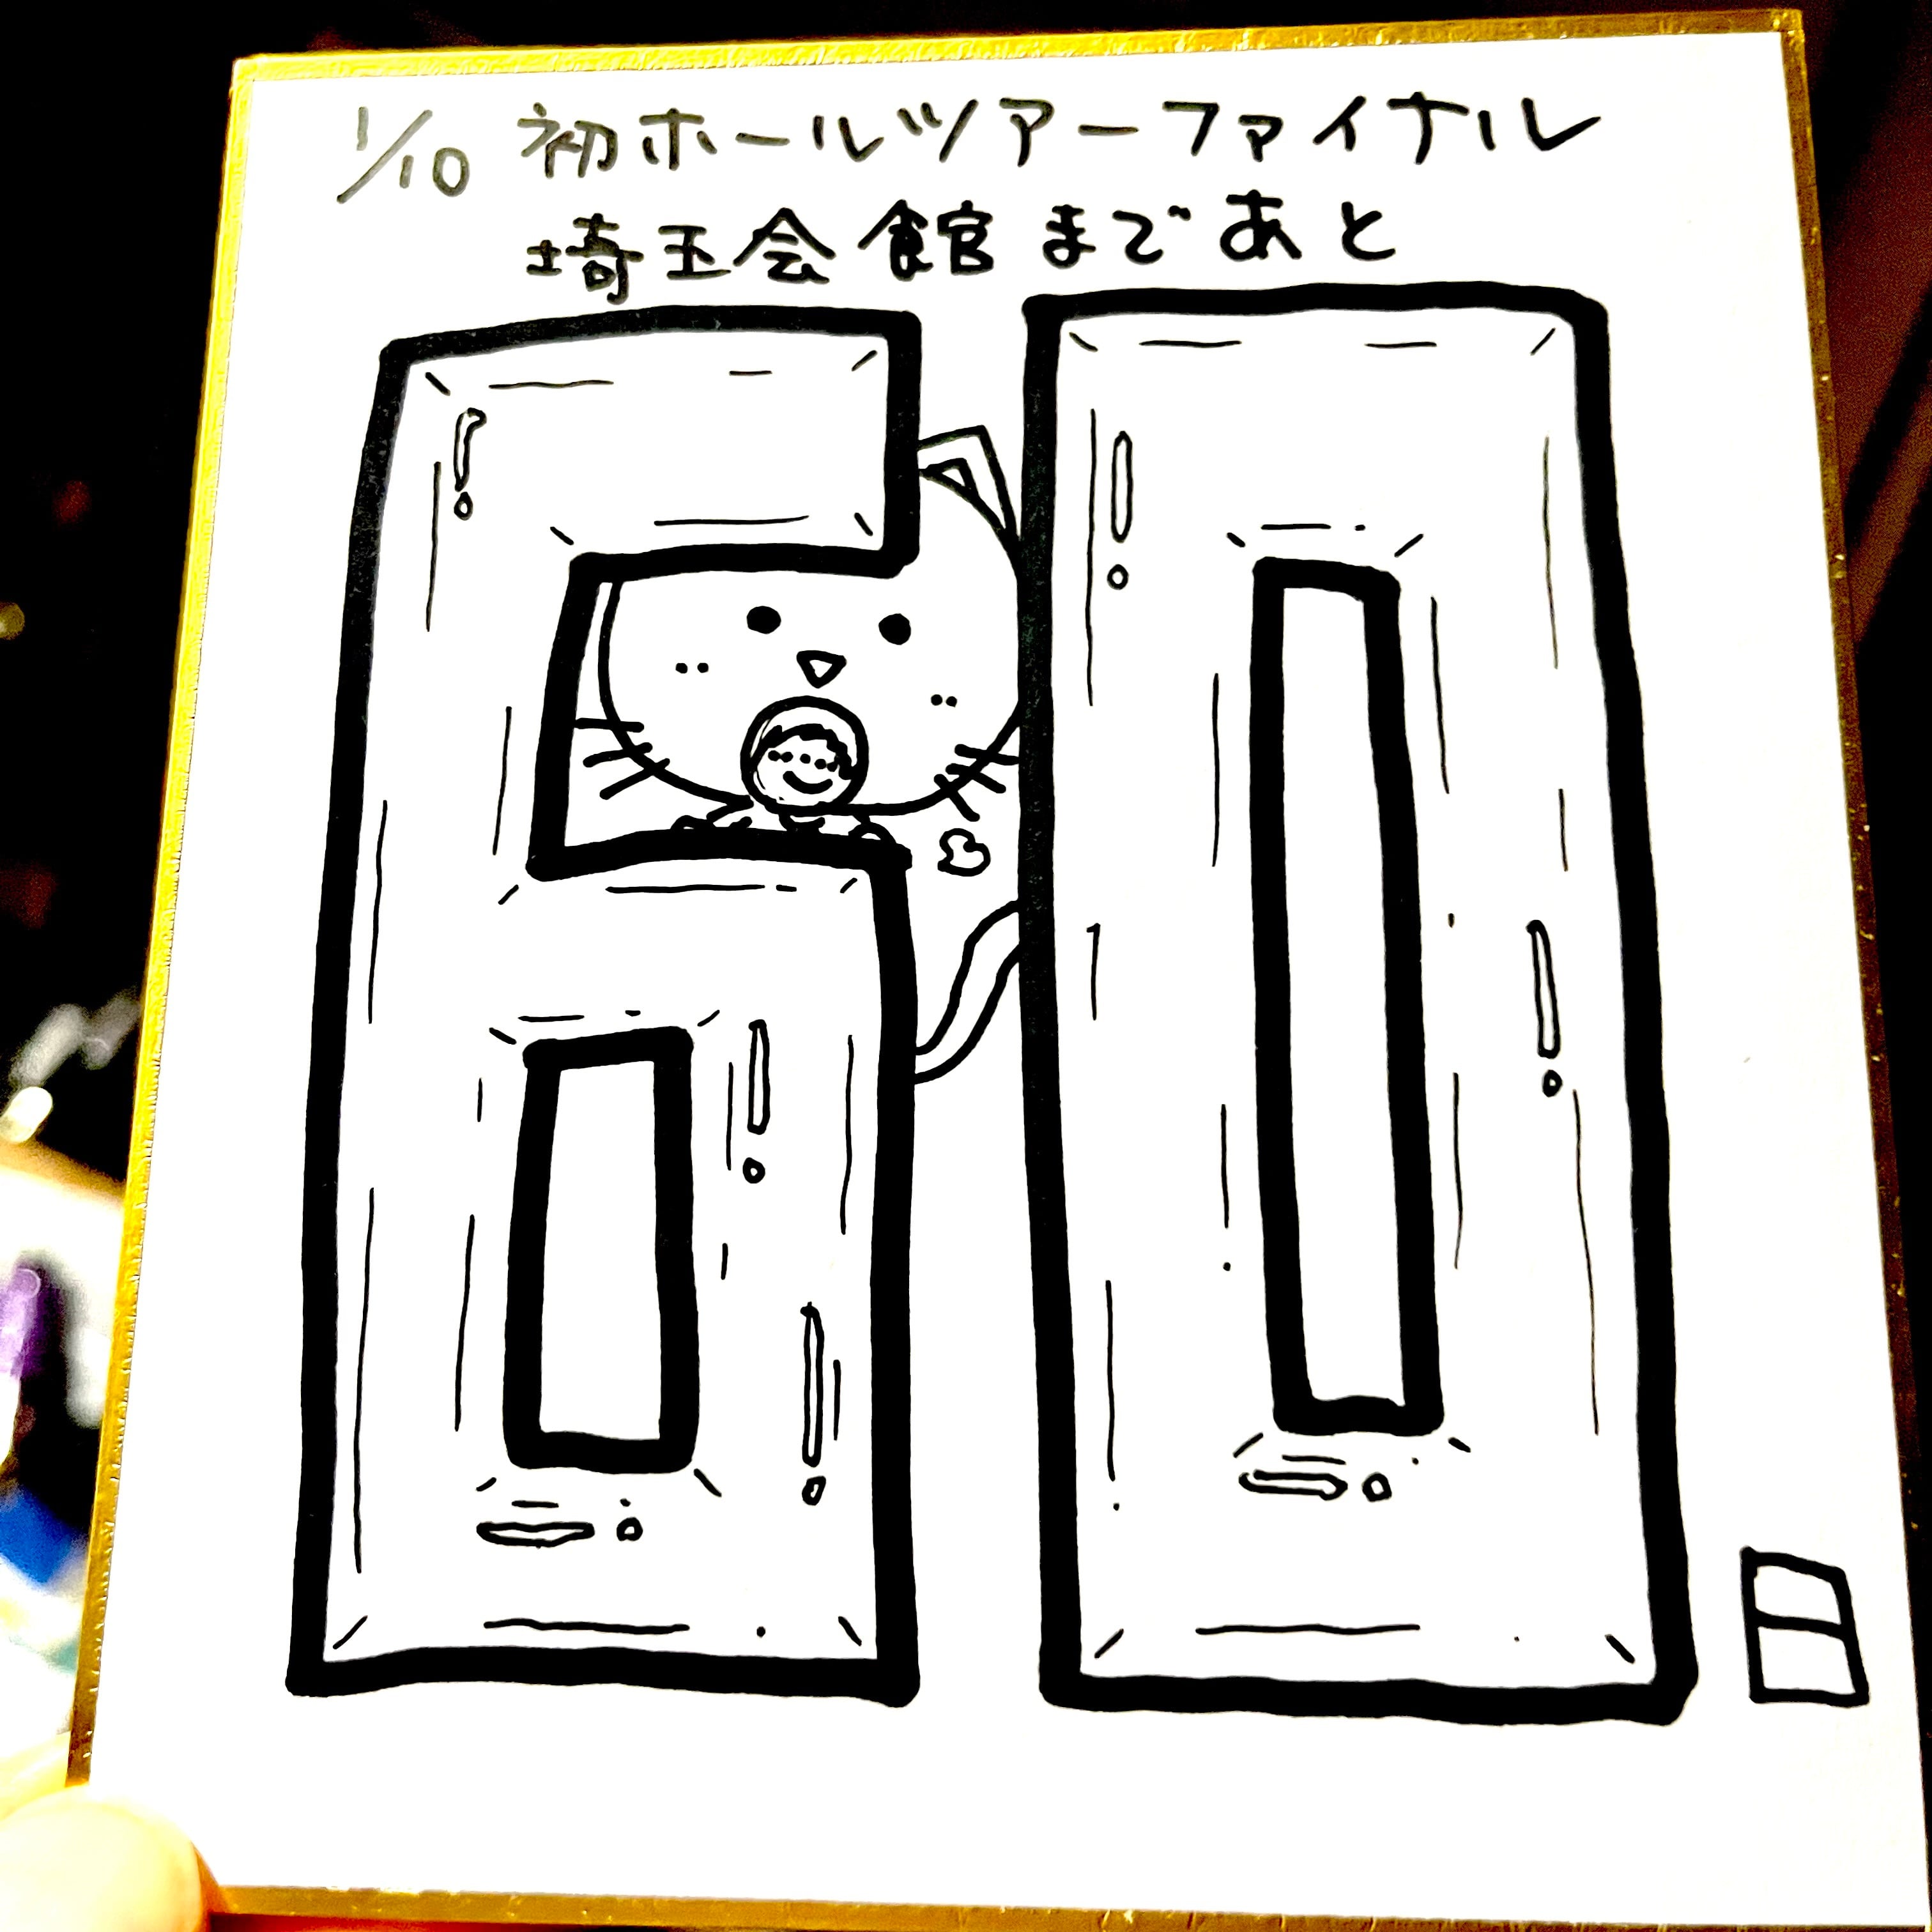 1/10 初ホールツアーファイナル
埼玉会館まであと
60日